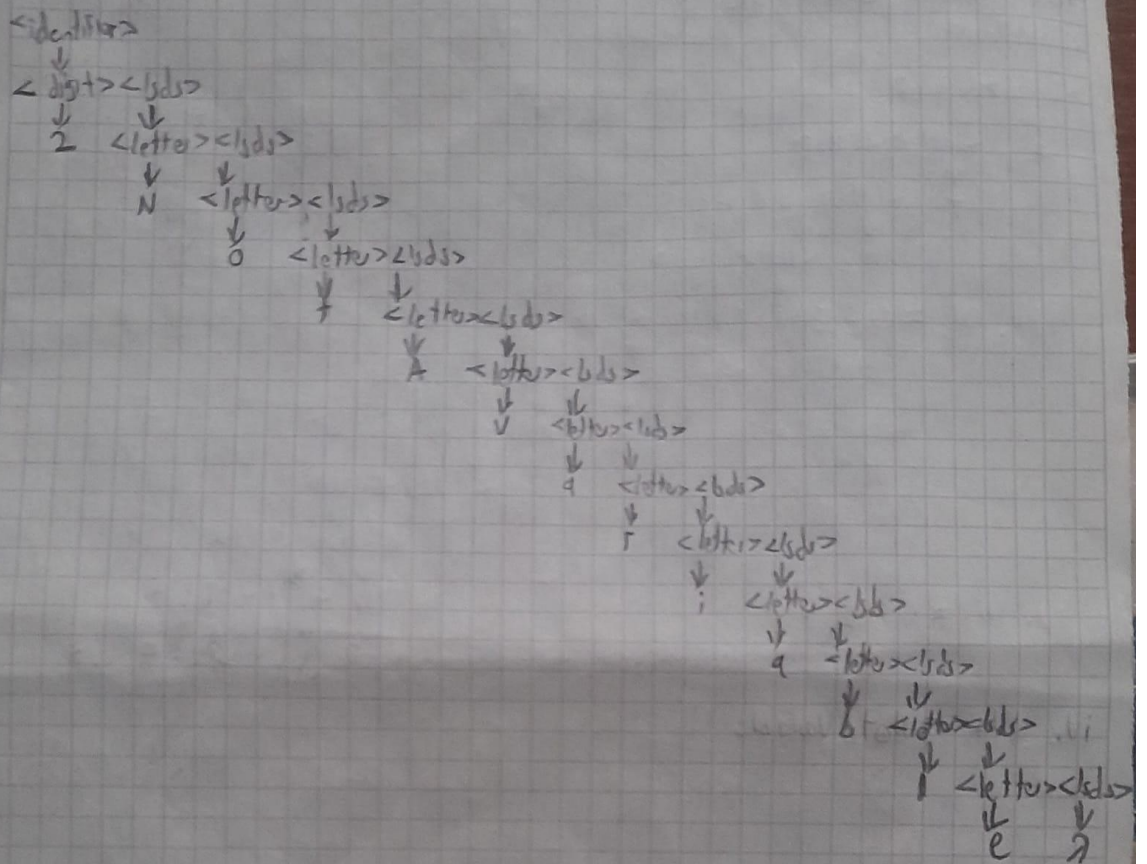 <identifier>
<digit><lsds>
2 <letter><lsds>
N <letter><lsds>
o <letter><lsds>
t <letter><lsds>
A <letter><lsds>
V <letter><lsds>
a <letter><lsds>
r <letter><lsds>
i <letter><lsds>
a <letter><lsds>
b <letter><lsds>
l <letter><lsds>
e λ